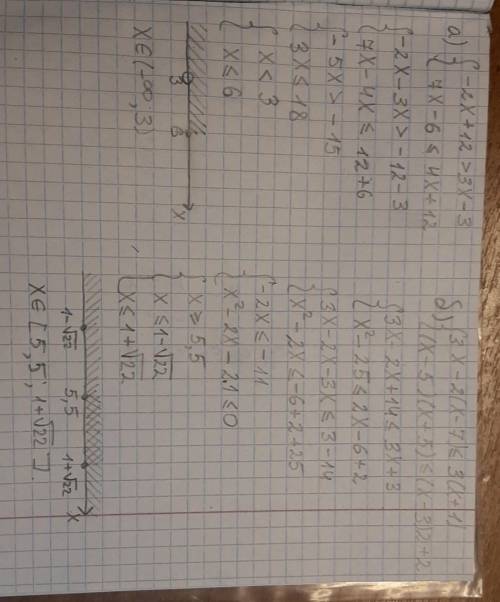 а) { -2x+12>3x-3
7x-6≤4x+12
{ -2x-3x>-12-3
7x-4x≤12+6
{ -5x>-15
3x≤18
{ x<3
x≤6
3 6 x
x∈(-∞;3)
б) { 3x-2(x-7)≤3(x+1)
(x-5)(x+5)≤(x-3)2+2
{ 3x-2x+14≤3x+3
x²-25≤2x-6+2
{ 3x-2x-3x≤3-14
x²-2x≤-6+2+25
{ -2x≤-11
x²-2x-21≤0
{ x≥5,5
x≤1-√22
x≤1+√22
1-√22 5,5 1+√22 x
x∈[5,5;1+√22].